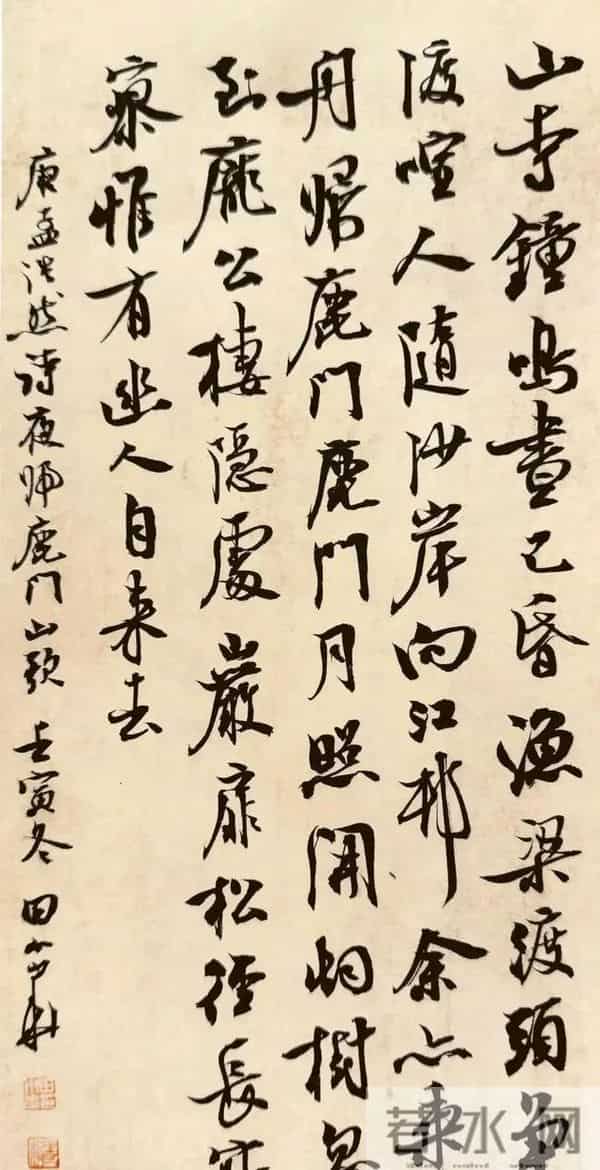 山寺鐘鳴晝已昏漁梁渡頭爭
渡喧人隨沙岸向江村余亦乘
舟歸鹿門鹿門月照開烟樹忽
到龐公棲隱處巖扉松徑長寂
寥惟有幽人自来去
唐孟浩然詩夜歸鹿門山歌 壬寅冬 田
若水网